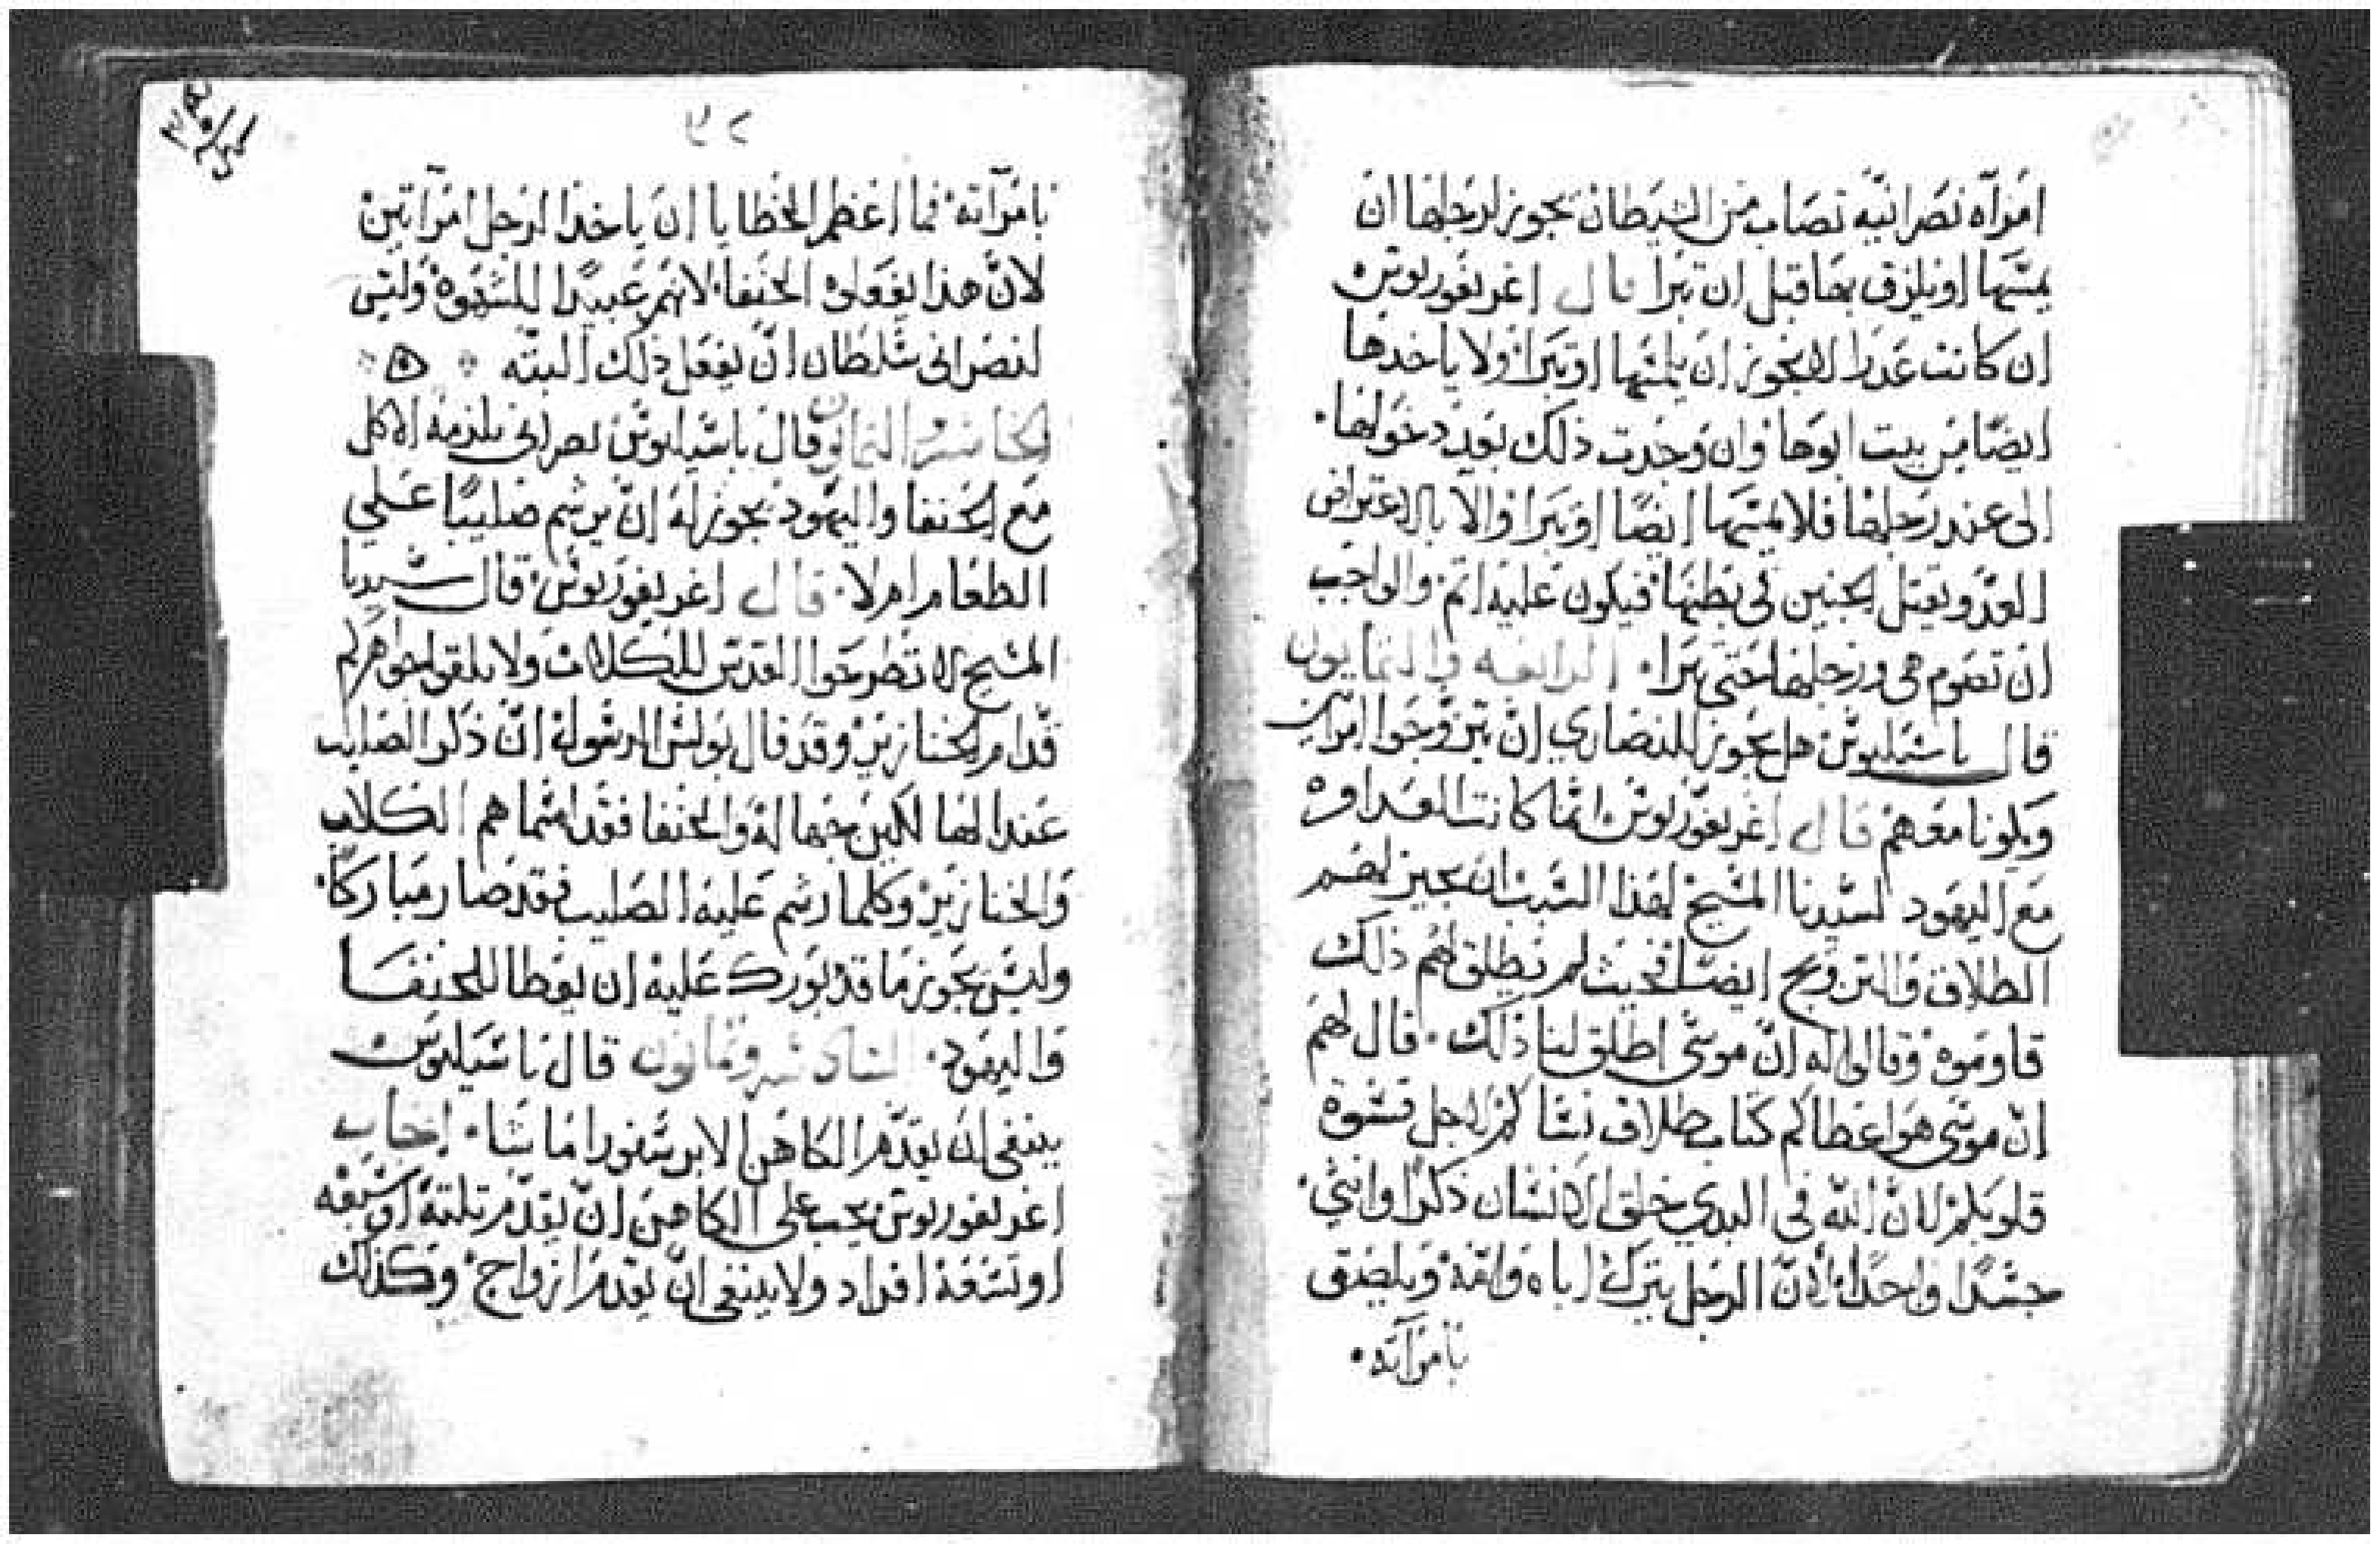 امرآه نصرانيّه تصاب من الشيطان يجوز لرجلها ان
يمسّها او يلزق بها قبل ان تبرا قال اغريغوريوس
ان كانت عدرا لا يجوز ان يلمسها او تبرا ولا ياخدها
ايضًا من بيت ابوها وان وجدت ذلك بعد دخولها.
الى عند رجلها فلا يمسّها ايضًا او تبرا والا بالاعتراض
العدو يقتل الجنين في بطنها فيكون عليه اتم. والواجب
ان تصوم هي ورجلها حتى تبرا. الرابعه والثمانون
قال باسيليوس هل يجوز للنصاري ان يتزوّجوا امراتين
ويكونا معهم قال اغريغوريوس انما كانت العداوه
مع اليهود لسيدنا المسيح لهذا السبب ان يجيز لهم
الطلاق والتزويج ايضًا فحيث لم يطلق لهم ذلك
قاوموه وقالوا له انّ موسى اطلق لنا ذلك. قال لهم
انّ موسى هو اعطاكم كتاب طلاق نساكم لاجل قسوة
قلوبكم لانّ الله في البدي خلق الانسان ذكرًا وانثي.
جسدًا واحدًا. لانّ الرجل يترك اباه وامّه ويلصق
بامرآته.
٣٢
بامرآته. فما اعظم الخطايا ان ياخذ الرجل امرآتين
لانّ هذا يفعلوه الحنفا. لانهم عبيدًا للشهوة وليس
لنصراني سلطان انّ يفعل ذلك البتّه
الخامسه والثمانون قال باسيليوس نصراني يلزمه الاكل
مع الحنفا واليهود يجوز له انّ يرشم صليبًا علي
الطعام ام لا. قال اغريغوريوس. قال سيدنا
المسيح لا تطرحوا القدس للكلاب ولا يلقوا جواهركم
قدام الخنازير وقد قال بولس الرسول انّ ذكر الصليب
عند الهالكين جهالة والحنفا فقد اسماهم الكلاب
والخنازير وكلما رشم عليه الصليب فقد صار مباركًا.
وليس يجوز ما قد بورك عليه ان يعطا للحنفا
واليهود. السادسه وثمانون قال باسيليوس
ينبغي ان يقدّم الكاهن الابرسفورا ما شا. اجاب
اغريغوريوس يجب على الكاهن انّ يقدّم تلتة او سبعه
او تسعة افراد ولا ينبغي انّ يقدم ازواج. وكذلك